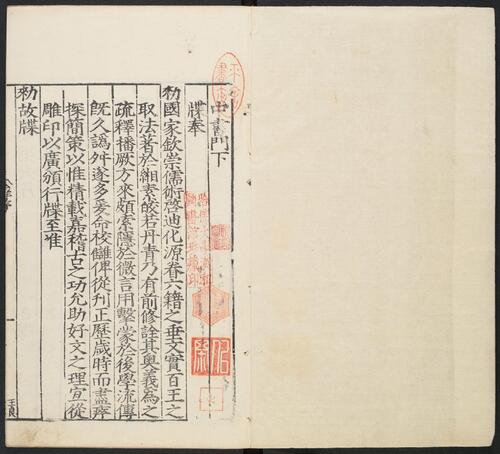 中書門下
牒奉
勑國家欽崇儒術啓迪化源眷六籍之垂文實百王之
取法著於緗素皎若丹青乃有前修詮其奧義為之
疏釋播厥方來頗索隱於微言用擊蒙於後學流傳
既久譌舛遂多爰命校讎俾從刊正歷歲時而盡瘁
探簡策以惟精載嘉稽古之功允助好文之理宜從
雕印以廣頒行牒至准
勑故牒